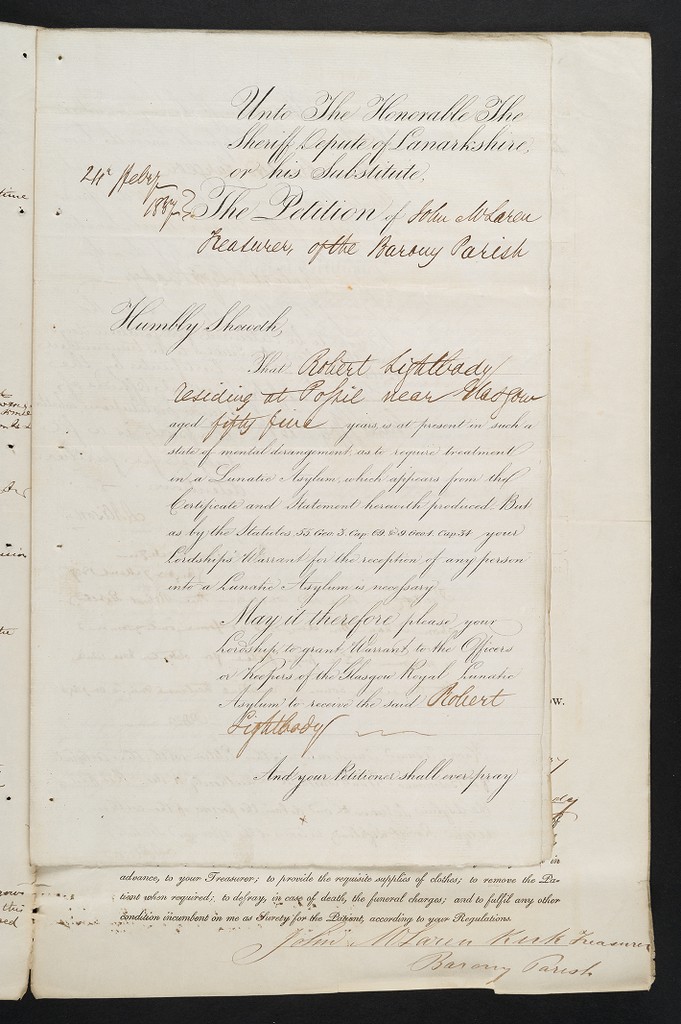 Unto The Honorable The
Sheriff Depute of Lanarkshire,
or his Substitute,
24th Feby
1837
The Petition of John McLaren
Treasurer, of the Barony Parish
Humbly Sheweth,
That Robert Lightbody
residing at Possil near Glasgow
aged fifty five years, is at present in such a
state of mental derangement, as to require treatment
in a Lunatic Asylum, which appears from the
Certificate and Statement herewith produced. But
as by the Statutes, 55 Geo. 3. Cap. 69. & 9 Geo 4. Cap. 34. your
Lordship's Warrant for the reception of any person
into a Lunatic Asylum is, necessary.
May it therefore please your
Lordship, to grant Warrant, to the Officers
or Keepers of the Glasgow Royal Lunatic
Asylum to receive the said Robert
Lightbody
And your Petitioner shall ever pray
ow.
in
advance, to your Treasurer; to provide the requisite supplies of clothes; to remove the Pa-
tient when required; to defray, in case of death, the funeral charges; and to fulfil any other
condition incumbent on me as Surety for the Patient, according to your Regulations.
John McLaren Kirk Treasurer
Barony Parish